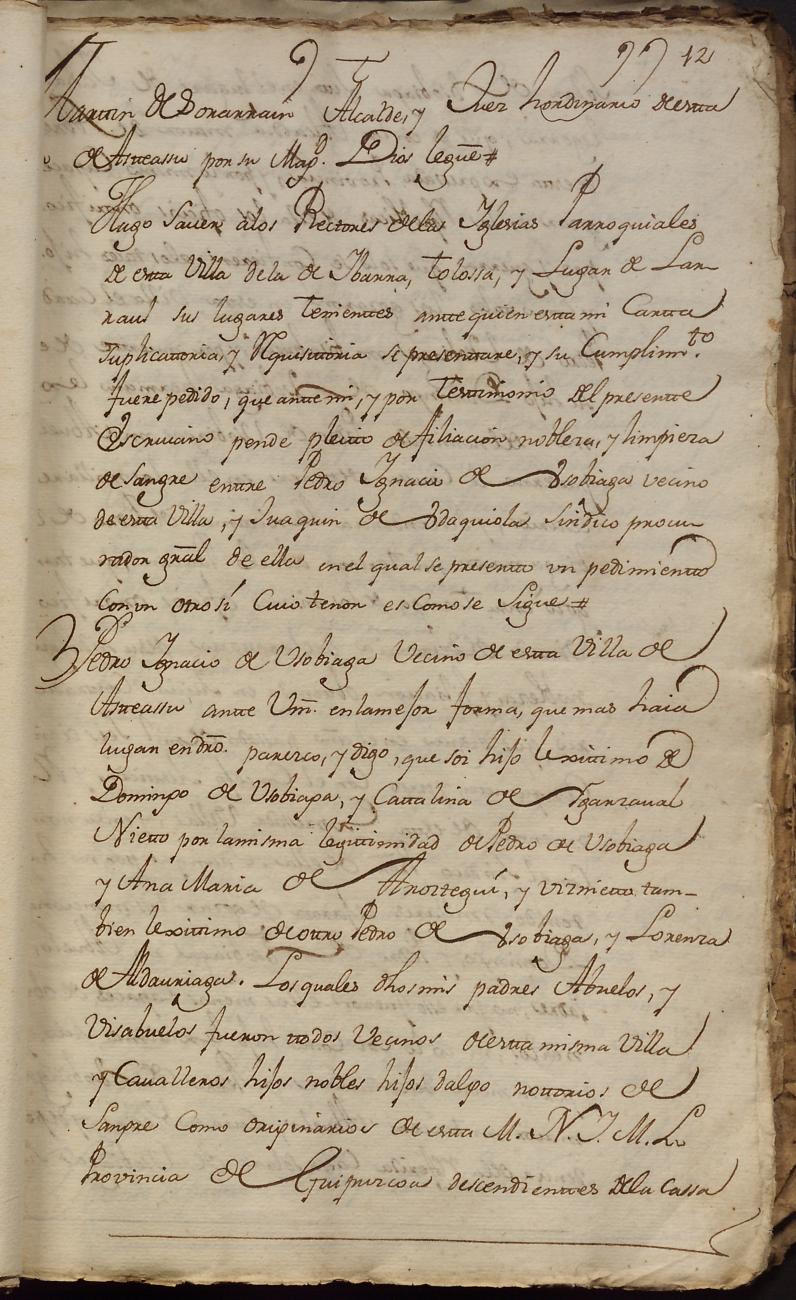 12
Martin de Sorarrain Alcalde, y Juez hordinario de esta
de Asteassu por su Magd. Dios le gue #
Hago Saver a los Rectores de las Yglesias Parroquiales
de esta Villa de la de Ybarra, tolossa, y Lugar de Lar-
raul sus lugares Tenientes ante quien esta mi Carta
suplicatoria, y Requisitoria se presentare, y su Cumplimto.
fuere pedido, que ante mi, y por Testimonio del presente
Escrivano pende pleito de filiacion nobleza, y limpieza
de Sangre entre Pedro Ygnacio de Usobiaga vecino
de esta Villa, y Juaquin de Udaquiola Sindico procu-
rador gral de ella en el qual se presento un pedimiento
con un otro si Cuio tenor es Como se Sigue #
Pedro Ygnacio de Usobiaga Vecino de esta Villa de
Asteassu ante Vm. en la mejor forma, que mas haia
lugar en dro. parezco, y digo, que soi hijo lexitimo de
Domingo de Usobiaga, y Cattalina de Yganzaval
Nieto por la misma legitimidad de Pedro de Usobiaga
y Ana Maria de Anoztegui, y viznieto tam-
bien lexitimo de otro Pedro de Usobiaga, y Lorenza
de Aldauriaga. Los quales dhos mis padres Abuelos, y
Visabuelos fueron todos Vecinos de esta misma Villa
y Cavalleros hijos nobles hijos dalgo nottorios de
Sangre Como originarios de esta M. N. Y. M. L.
Provincia de Guipuzcoa descendientes de la Cassa